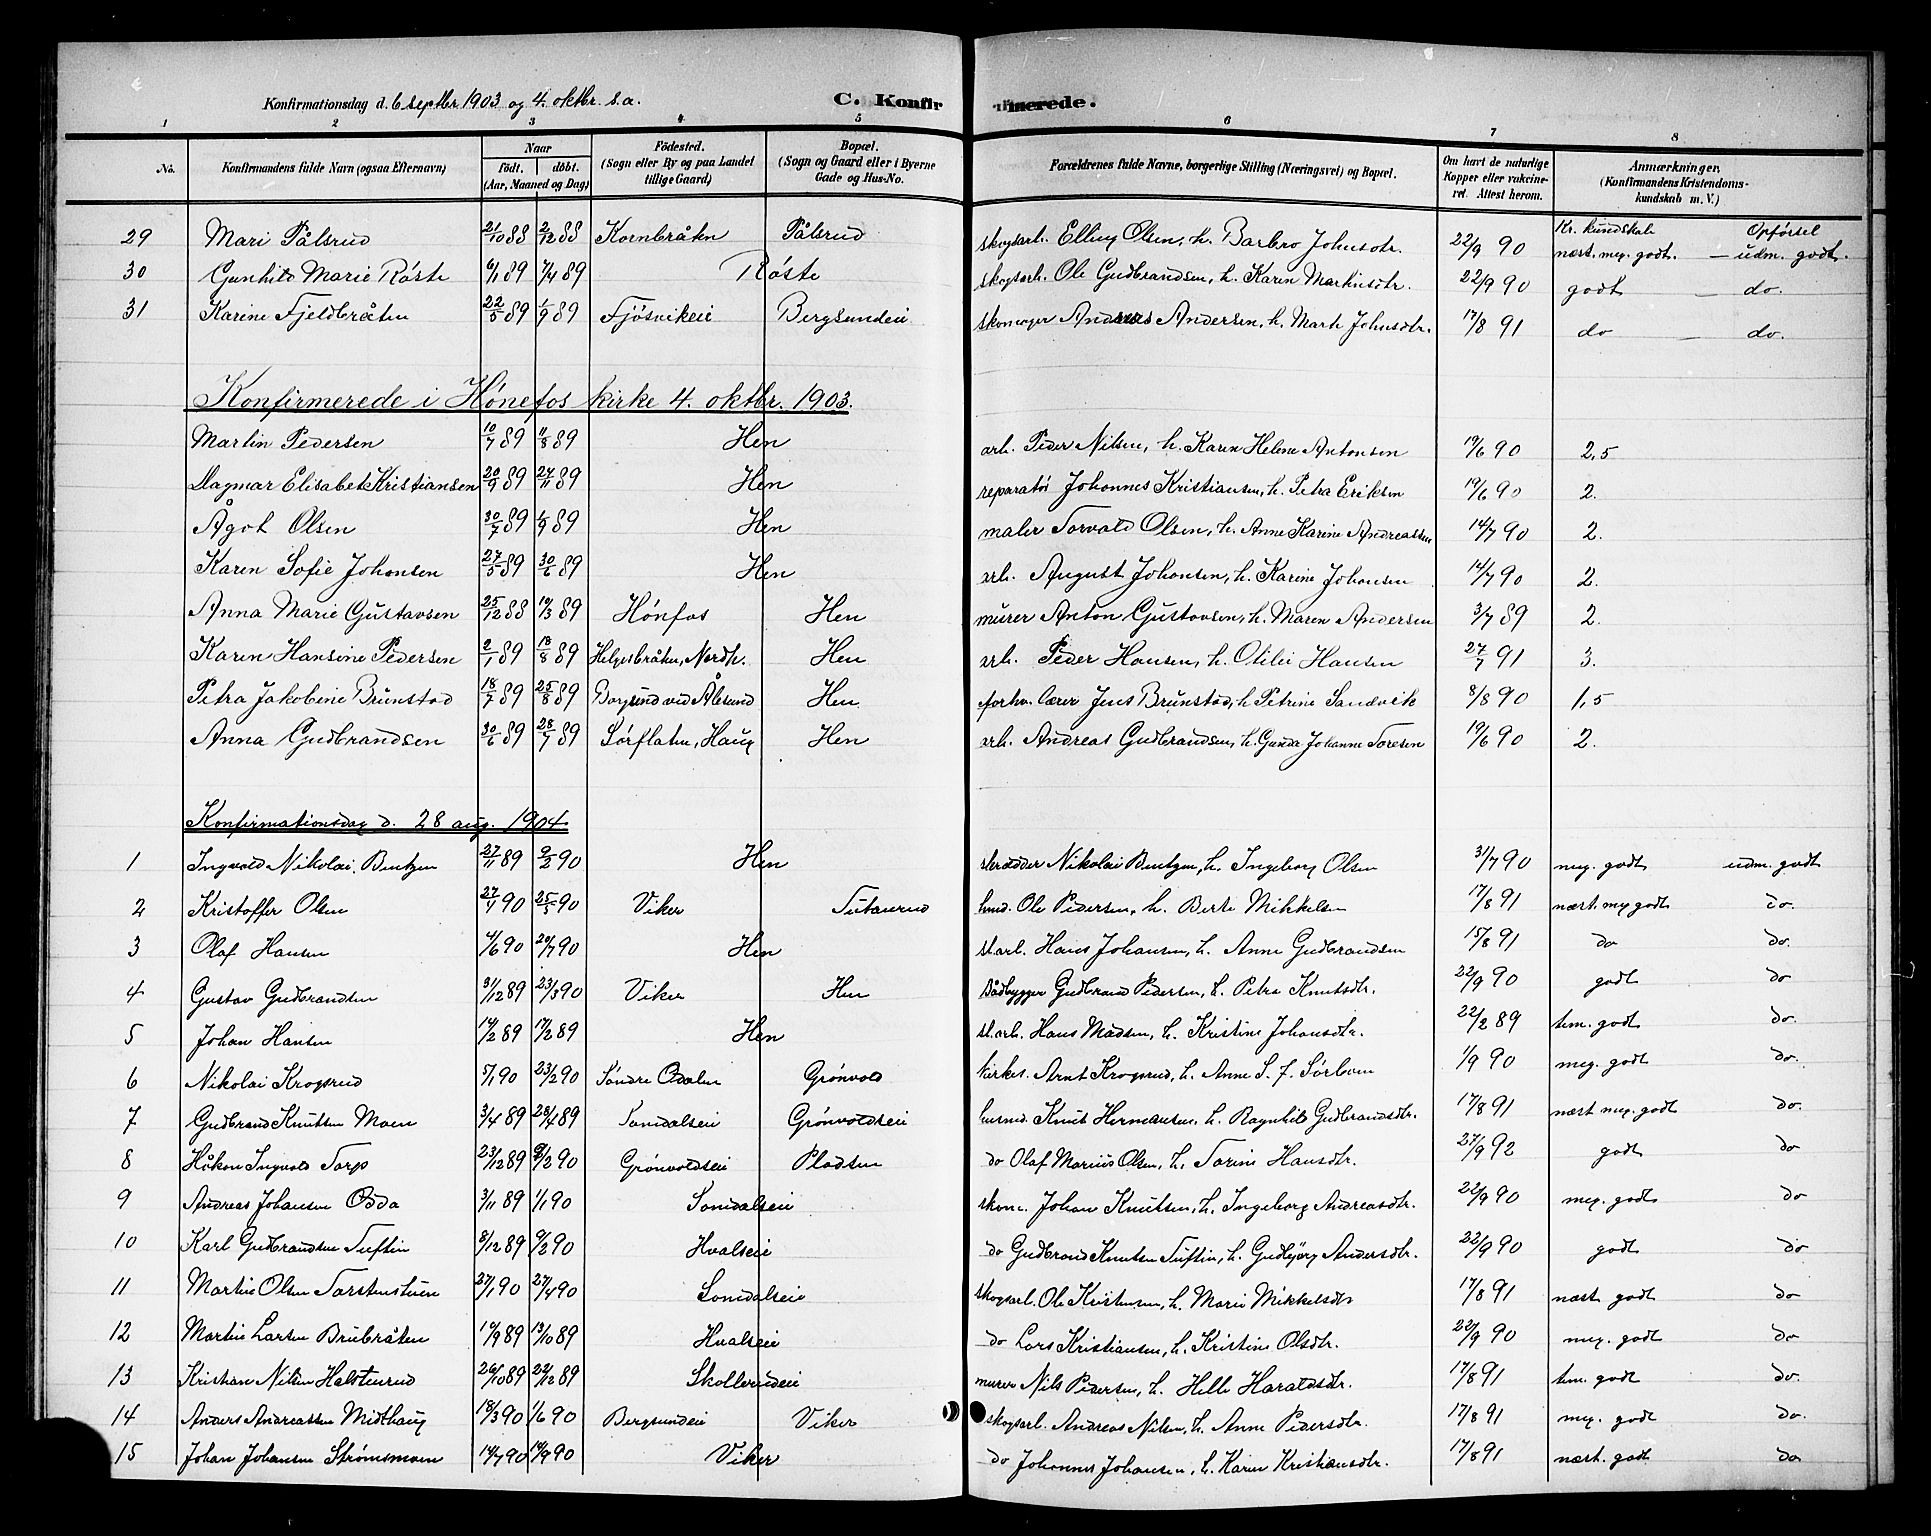 Konfirmationsdag d. 6 septbr. 1903 og 4. oktbr. s.a. C. Konfirmerede.
1 2 3 4 5 6 7 8
No. Konfirmandens fulde Navn (ogsaa Efternavn) Naar født. døbt. (Aar, Maaned og Dag) Fødested. (Sogn eller By og paa Landet tillige Gaard) Bopæl. (Sogn og Gaard eller i Byerne Gade og Hus-No. Forældrenes fulde Navne, borgerlige Stilling (Næringsvei) og Bopæl. Om havt de naturlige Kopper eller vakcineret. Attest herom. Anmærkninger. (Konfirmandens Kristendomskundskab m. V.)
Kr. kundskab Opførsel
29 Mari Pålsrud 21/10 88 2/12 88 Kornbråtn Pålsrud skogsarb. Elling Olsen, h. Barbro Johnsdtr. 22/9 90 næst. meg. godt. — udm. godt.
30 Gunhild Marie Røste 6/1 89 7/4 89 Røste skogsarb. Ole Gudbrandsen, h. Karen Martinsdtr. 22/9 90 godt — do.
31 Karine Fjeldbråten 22/5 89 1/9 89 Fjøsvikeie Bergsundeie skomager Andreas Andersen, h. Marte Johnsdtr. 17/8 91 do — do.
Konfirmerede i Hønefos kirke 4. oktbr. 1903.
Martin Pedersen 10/7 89 11/8 89 Hen arb. Peder Nilsen, h. Karen Helene Antonsen 19/6 90 2,5
Dagmar Elisabet Kristiansen 20/9 89 24/11 89 Hen reparatør Johannes Kristiansen, h. Petra Eriksen 19/6 90 2.
Ågot Olsen 30/7 89 1/9 89 Hen maler Torvald Olsen, h. Anne Karine Andreassen 14/7 90 2.
Karen Sofie Johansen 27/5 89 30/6 89 Hen arb. August Johansen, h. Karine Johansen 14/7 90 2.
Anna Marie Gustavsen 25/12 88 10/3 89 Hønfos Hen murer Anton Gustavsen, h. Maren Andersen 3/7 89 2.
Karen Hansine Pedersen 2/1 89 18/8 89 Helgesbråten, Nordh. Hen arb. Peder Hansen, h. Otilie Hansen 27/7 91 3.
Petra Jakobine Brunstad 18/7 89 25/8 89 Borgund ved Ålesund Hen forhv. lærer Jens Brunstad, h. Petrine Sandvik 8/8 90 1,5
Anna Gudbrandsen 30/6 89 28/7 89 Sørflaten, Haug Hen arb. Andreas Gudbrandsen, h. Gunda Johanne Toresen 19/6 90 2.
Konfirmationsdag d. 28 aug. 1904.
1 Ingvald Nikolai Bentzen 27/11 89 9/2 90 Hen skrædder Nikolai Bentzen, h. Ingeborg Olsen 31/7 90 meg. godt udm. godt
2 Kristoffer Olsen 27/1 90 25/5 90 Viker Tutanrud husmd. Ole Pedersen, h. Berte Mikkelsen 17/8 91 næst. meg godt do.
3 Olaf Hansen 4/6 90 20/7 90 Hen st.arb. Hans Johansen, h. Anne Gudbrandsen 15/8 91 do do.
4 Gustav Gudbrandsen 31/12 89 23/3 90 Viker Hen bådbygger Gudbrand Pedersen, h. Petra Knutsdtr. 22/9 90 godt do
5 Johan Hansen 14/2 89 17/2 89 Hen st.arb. Hans Madsen, h. Kristine Johansdtr. 22/2 89 tem. godt do.
6 Nikolai Krogsrud 5/1 90 23/2 90 Søndre Odalen Grønvold kirkes. Arnt Krogsrud, h. Anne S. f. Sørbøen 1/9 90 meg. godt do.
7 Gudbrand Knutsen Moen 3/4 89 28/4 89 Somdalseie Grønvoldseie husmd. Knut Hermansen, h. Ragnhild Gudbrandsdtr. 17/8 91 næst meg. godt do.
8 Håkon Ingvald Torp 23/12 89 9/2 90 Grønvoldseie Pladsen do Olaf Marius Olsen, h. Torine Hansdtr. 27/9 92 godt do
9 Andreas Johansen Oppda 3/11 89 1/1 90 Somdalseie skom. Johan Knutsen, h. Ingeborg Andreasdtr. 22/9 90 meg. godt do
10 Karl Gudbrandsen Tuftin 8/12 89 9/2 90 Hvalseie do Gudbrand Knutsen Tuftin, h. Gudbjørg Andersdtr. 22/9 90 godt do
11 Martin Olsen Torstenstuen 27/1 90 27/4 90 Somdalseie skogsarb. Ole Kristensen, h. Marie Mikkelsdtr 17/8 91 næst godt do
12 Martin Larsen Brubråten 19/9 89 13/10 89 Hvalseie do Lars Kristiansen, h. Kristine Olsdtr. 22/9 90 meg. godt do
13 Kristian Nilsen Halstenrud 26/10 89 22/12 89 Skollerudeie murer Nils Pedersen, h. Helle Haraldsdtr. 17/8 91 tem. godt do.
14 Anders Andreassen Midthaug 18/3 90 1/6 90 Bergsundeie Viker skogsarb. Andreas Nilsen, h. Anne Pedersdtr. 17/8 91 meg. godt do.
15 Johan Johansen Strømsmoen 14/7 90 14/9 90 Viker do Johannes Johansen, h. Karen Kristiansdtr. 17/8 91 næst. godt do